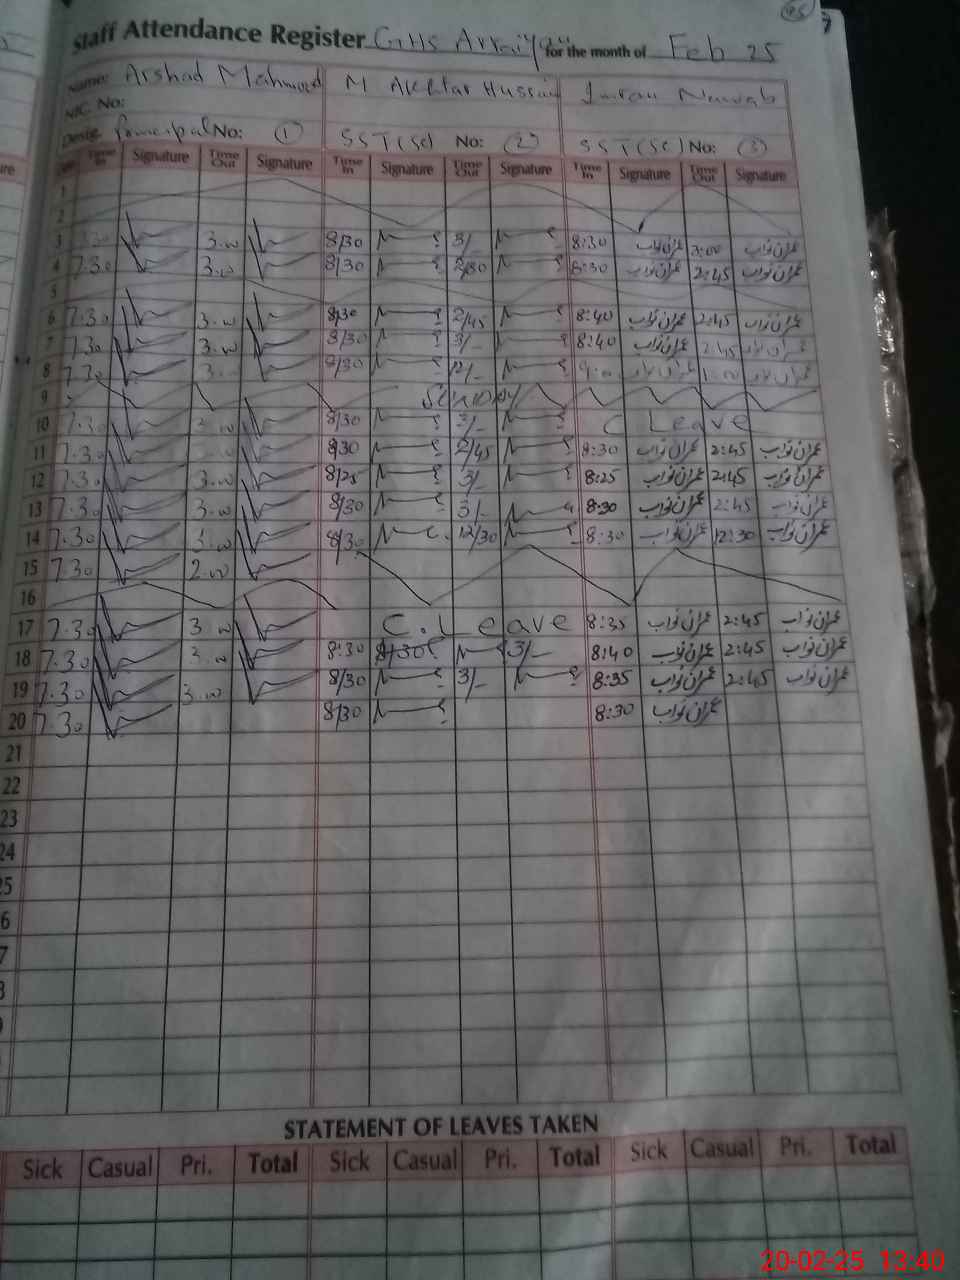 Staff Attendance Register GHS for the month of Feb 25
Name: Arshad Mahmood M Akhtar Hussain Imran Nawab
NIC. No:
Desig. Principal No: 1 SST(Sc) No: 2 SST(Sc) No: 3
Time In Signature Time Out Signature Time In Signature Time Out Signature Time In Signature Time Out Signature
1
2
3 3.00 8/30 3/- 8:30 عمران نواب 3:00 عمران نواب
4 7.30 3.00 8/30 2/30 8:30 عمران نواب 2:45 عمران نواب
5
6 7.30 3.00 8/30 2/45 8:40 عمران نواب 2:45 عمران نواب
7 7.30 3.00 8/30 3/- 8:40 عمران نواب 2:45 عمران نواب
8 7.30 8/30 12/- عمران نواب عمران نواب
9 Sunday
10 7.30 8/30 3/- C Leave
11 7.30 8/30 2/45 8:30 عمران نواب 2:45 عمران نواب
12 7.30 3.00 8/25 3/- 8:25 عمران نواب 2:45 عمران نواب
13 7.30 3.00 8/30 3/- 8:30 عمران نواب 2:45 عمران نواب
14 7.30 3.00 8/30 12/30 8:30 عمران نواب 12:30 عمران نواب
15 7.30 2.00
16
17 7.30 3.00 C. Leave 8:35 عمران نواب 2:45 عمران نواب
18 7.30 3.00 8:30 8/30 3/- 8:40 عمران نواب 2:45 عمران نواب
19 7.30 3.00 8/30 3/- 8:35 عمران نواب 2:45 عمران نواب
20 7.30 8/30 8:30 عمران نواب
21
22
23
24
25
STATEMENT OF LEAVES TAKEN
Sick Casual Pri. Total Sick Casual Pri. Total Sick Casual Pri. Total
20-02-25 13:40